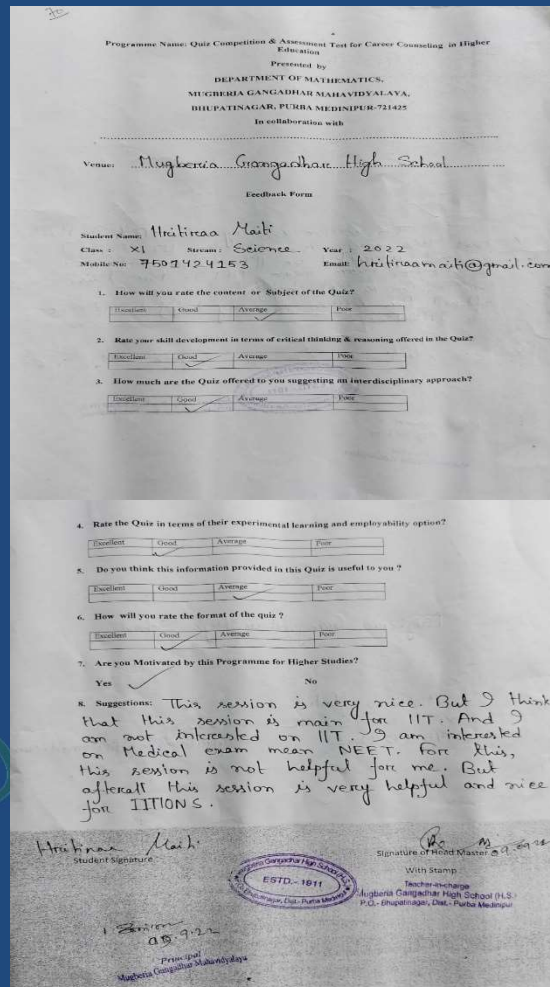 Programme Name: Quiz Competition & Assessment Test for Career Counseling in Higher
Education
Presented by
DEPARTMENT OF MATHEMATICS,
MUGBERIA GANGADHAR MAHAVIDYALAYA,
BHUPATINAGAR, PURBA MEDINIPUR-721425
In collaboration with
Venue: Mugberia Gangadhar High School
Feedback Form
Student Name: Hritinaa Maiti
Class : XI Stream : Science Year : 2022
Mobile No: 7501424153 Email: hritinaamaiti@gmail.com
1. How will you rate the content or Subject of the Quiz?
Excellent Good Average Poor
2. Rate your skill development in terms of critical thinking & reasoning offered in the Quiz?
Excellent Good Average Poor
3. How much are the Quiz offered to you suggesting an interdisciplinary approach?
Excellent Good Average Poor
4. Rate the Quiz in terms of their experimental learning and employability option?
Excellent Good Average Poor
5. Do you think this information provided in this Quiz is useful to you ?
Excellent Good Average Poor
6. How will you rate the format of the quiz ?
Excellent Good Average Poor
7. Are you Motivated by this Programme for Higher Studies?
Yes No
8. Suggestions: This session is very nice. But I think
that this session is main for IIT. And I
am not interested on IIT. I am interested
on Medical exam mean NEET. For this,
this session is not helpful for me. But
afterall this session is very helpful and nice
for IITIONS.
Hritinaa Maiti
Student Signature
Signature of Head Master
With Stamp
Teacher-in-charge
Mugberia Gangadhar High School (H.S.)
P.O.- Bhupatinagar, Dist.- Purba Medinipur
Mugberia Gangadhar High School (H.S.)
ESTD.- 1911
Bhupatinagar, Dist.- Purba Medinipur
Principal
Mugberia Gangadhar Mahavidyalaya